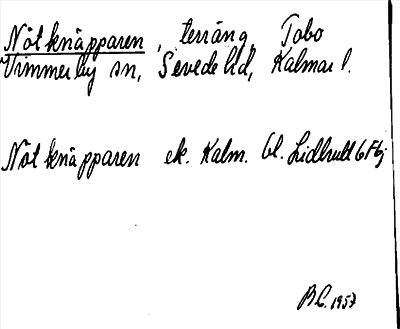 Nötknäpparen, terräng Tobo
Vimmerby sn, Sevede hd, Kalmar l.
Nötknäpparen ek. Kalm. bl. Lidhult 6 F6j
B.L. 1957